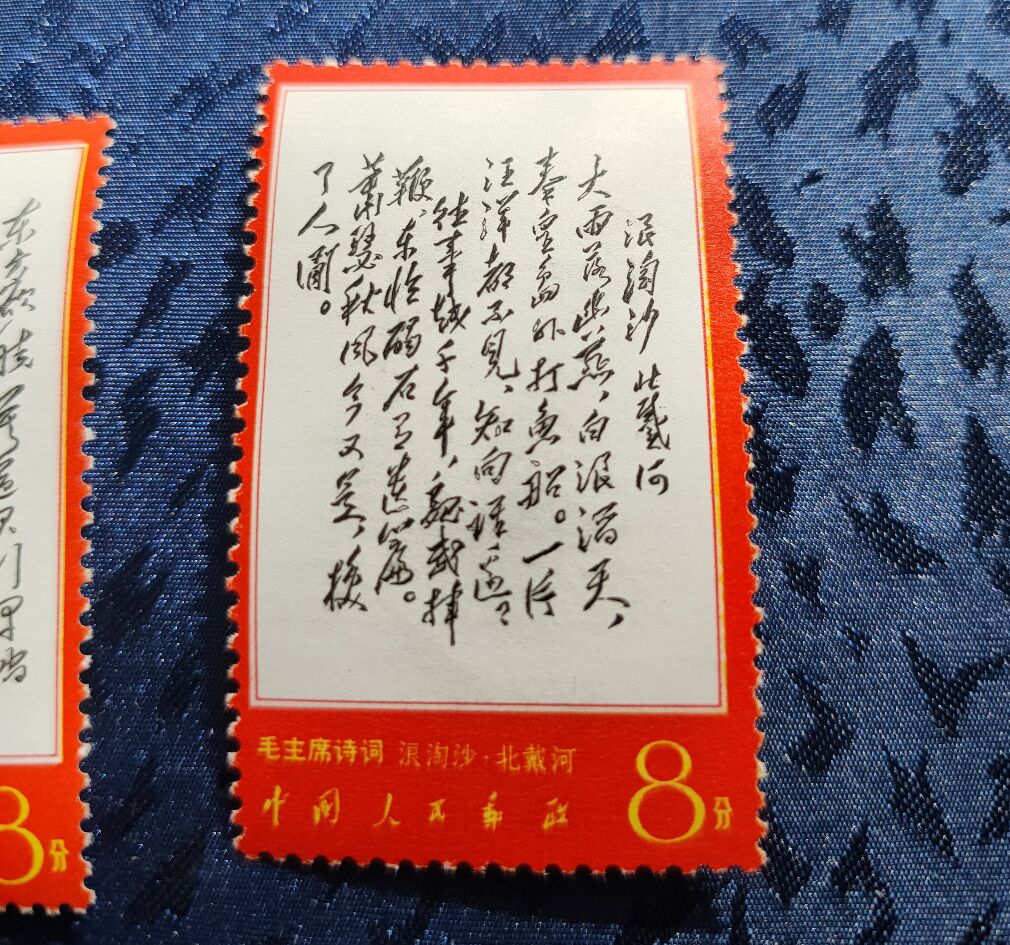 浪淘沙 北戴河
大雨落幽燕、白浪滔天、
秦皇島外打魚船。一片
汪洋都不见、知向谁边？
往事越千年、魏武挥
鞭、东临碣石有遗篇。
萧瑟秋风今又是、换
了人间。
毛主席诗词 浪淘沙·北戴河
中国人民邮政
8分
东方欲晓莫道君行早踏
8分